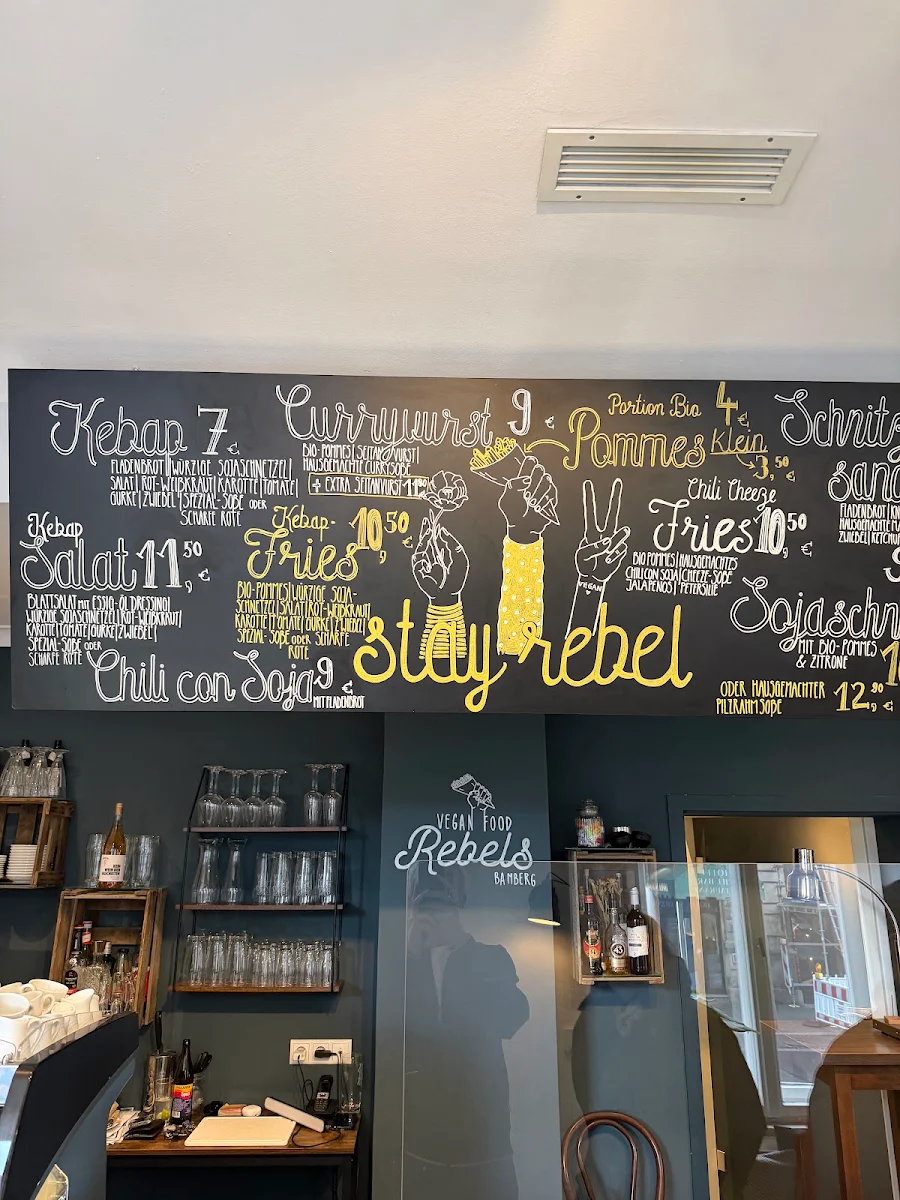 Kebap 7 €
FLADENBROT | WÜRZIGE SOJASCHNETZEL |
SALAT | ROT-WEIßKRAUT | KAROTTE | TOMATE |
GURKE | ZWIEBEL | SPEZIAL-SOßE ODER
SCHARFE ROTE
Currywurst 9 €
BIO-POMMES | SEITANWURST |
HAUSGEMACHTE CURRYSOßE
+ EXTRA SEITANWURST
Portion Bio 4 €
Pommes Klein
3,50 €
Schnitz
sand
FLADENBROT |
HAUSGEMACHTE
ZWIEBEL | KETCHU
Kebap
Salat 11,50 €
BLATTSALAT MIT ESSIG-ÖL DRESSING |
WÜRZIGE SOJASCHNETZEL | ROT-WEIßKRAUT |
KAROTTE | TOMATE | GURKE | ZWIEBEL |
SPEZIAL-SOßE ODER
SCHARFE ROTE
Kebap-
Fries 10,50 €
BIO-POMMES | WÜRZIGE SOJA-
SCHNETZEL | SALAT | ROT-WEIßKRAUT |
KAROTTE | TOMATE | GURKE | ZWIEBEL |
SPEZIAL-SOßE ODER SCHARFE
ROTE
Chili con Soja 9 €
MIT FLADENBROT
VEGAN
stay rebel
Chili Cheeze
Fries 10,50 €
BIO POMMES | HAUSGEMACHTES
CHILI CON SOJA | CHEEZE-SOßE
JALAPENOS | PETERSILIE
Sojaschn
MIT BIO-POMMES
& ZITRONE
ODER HAUSGEMACHTER
PILZRAHMSOßE 12,90 €
VEGAN FOOD
Rebels
BAMBERG